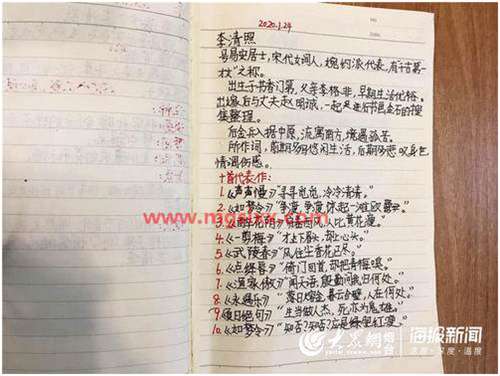 2020.1.24
李清照
号易安居士,宋代女词人,婉约派代表,有"千古第一
才女"之称。
出生于书香门第,父亲李格非,早期生活优裕。
出嫁后与丈夫赵明诚,一起走进书画金石的搜
集整理。
后金兵入据中原,流寓南方,境遇孤苦。
所作词,前期多写悠闲生活,后期多悲叹身世
情调伤感。
十首代表作:
1.《声声慢》"寻寻觅觅,冷冷清清。"
2.《如梦令》"争渡,争渡,惊起一滩鸥鹭。"
3. 人比黄花瘦。"
4.《一剪梅》"才下眉头,却上心头。"
5.《武陵春》"风住尘香花已尽。"
6.《点绛唇》"倚门回首,却把青梅嗅。"
7. "闻天语,殷勤问我归何处。"
8.《永遇乐》"落日熔金,暮云合璧,人在何处。"
9.《夏日绝句》"生当做人杰,死亦为鬼雄。"
10.《如梦令》"知否?知否?应是绿肥红瘦。"
www.mgslxx.com
大众网 海报新闻